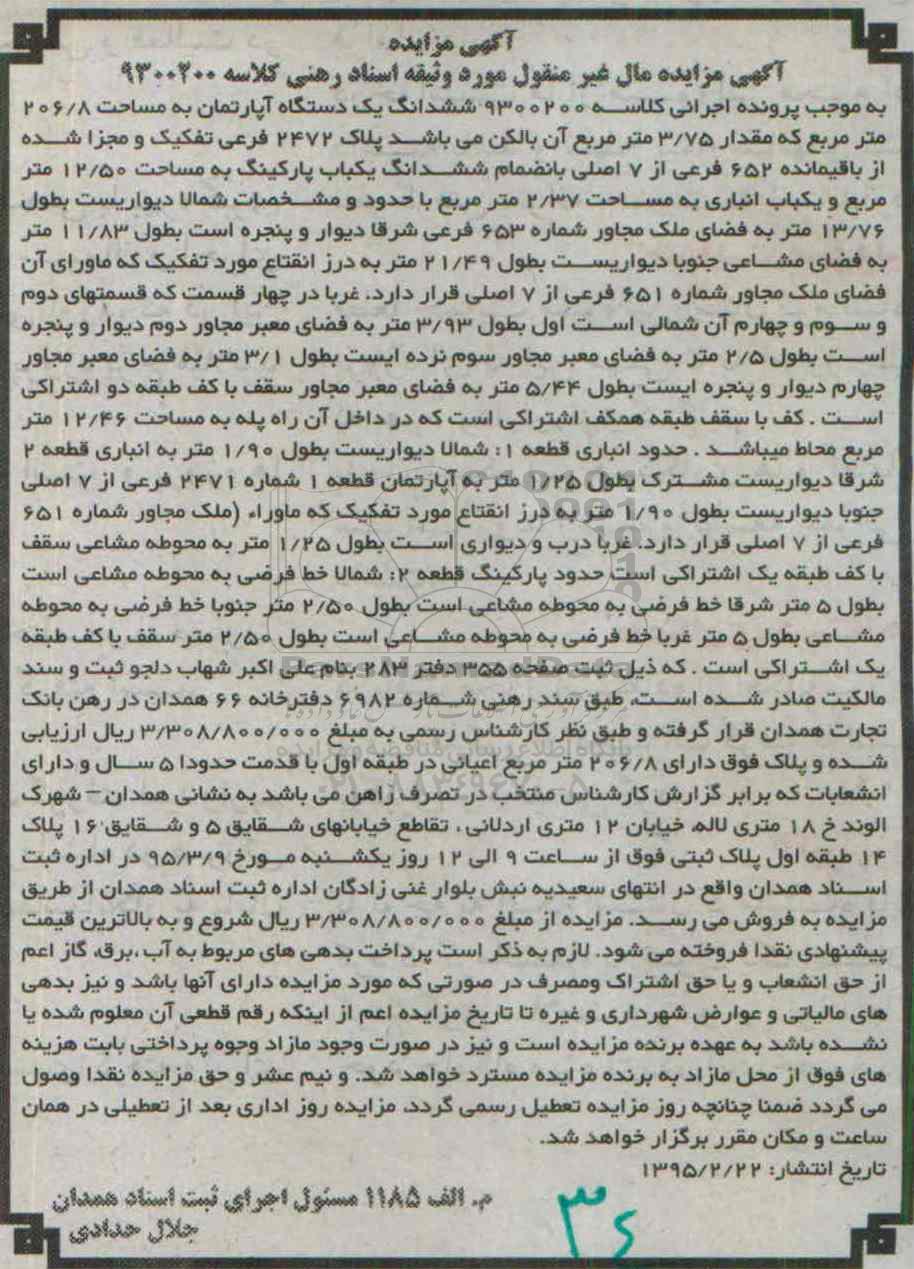 آگهی مزایده
آگهی مزایده مال غیر منقول مورد وثیقه اسناد رهنی کلاسه ۹۳۰۰۲۰۰
به موجب پرونده اجرائی کلاسه ۹۳۰۰۲۰۰ ششدانگ یک دستگاه آپارتمان به مساحت ۲۰۶/۸
متر مربع که مقدار ۳/۷۵ متر مربع آن بالکن می باشد پلاک ۲۴۷۲ فرعی تفکیک و مجزا شده
از باقیمانده ۶۵۲ فرعی از ۷ اصلی بانضمام ششدانگ یکباب پارکینگ به مساحت ۱۲/۵۰ متر
مربع و یکباب انباری به مساحت ۲/۳۷ متر مربع با حدود و مشخصات شمالا دیواریست بطول
۱۳/۷۶ متر به فضای ملک مجاور شماره ۶۵۳ فرعی شرقا دیوار و پنجره است بطول ۱۱/۸۳ متر
به فضای مشاعی جنوبا دیواریست بطول ۲۱/۴۹ متر به درز انقتاع مورد تفکیک که ماورای آن
فضای ملک مجاور شماره ۶۵۱ فرعی از ۷ اصلی قرار دارد. غربا در چهار قسمت که قسمتهای دوم
و سوم و چهارم آن شمالی است اول بطول ۳/۹۳ متر به فضای معبر مجاور دوم دیوار و پنجره
است بطول ۲/۵ متر به فضای معبر مجاور سوم نرده ایست بطول ۳/۱ متر به فضای معبر مجاور
چهارم دیوار و پنجره ایست بطول ۵/۴۴ متر به فضای معبر مجاور سقف با کف طبقه دو اشتراکی
است . کف با سقف طبقه همکف اشتراکی است که در داخل آن راه پله به مساحت ۱۲/۴۶ متر
مربع محاط میباشد . حدود انباری قطعه ۱: شمالا دیواریست بطول ۱/۹۰ متر به انباری قطعه ۲
شرقا دیواریست مشترک بطول ۱/۲۵ متر به آپارتمان قطعه ۱ شماره ۲۴۷۱ فرعی از ۷ اصلی
جنوبا دیواریست بطول ۱/۹۰ متر به درز انقتاع مورد تفکیک که ماوراء (ملک مجاور شماره ۶۵۱
فرعی از ۷ اصلی قرار دارد. غربا درب و دیواری است بطول ۱/۲۵ متر به محوطه مشاعی سقف
با کف طبقه یک اشتراکی است حدود پارکینگ قطعه ۲: شمالا خط فرضی به محوطه مشاعی است
بطول ۵ متر شرقا خط فرضی به محوطه مشاعی است بطول ۲/۵۰ متر جنوبا خط فرضی به محوطه
مشاعی بطول ۵ متر غربا خط فرضی به محوطه مشاعی است بطول ۲/۵۰ متر سقف با کف طبقه
یک اشتراکی است . که ذیل ثبت صفحه ۳۵۵ دفتر ۲۸۳ بنام علی اکبر شهاب دلجو ثبت و سند
مالکیت صادر شده است، طبق سند رهنی شماره ۶۹۸۲ دفترخانه ۶۶ همدان در رهن بانک
تجارت همدان قرار گرفته و طبق نظر کارشناس رسمی به مبلغ ۳/۳۰۸/۸۰۰/۰۰۰ ریال ارزیابی
شده و پلاک فوق دارای ۲۰۶/۸ متر مربع اعیانی در طبقه اول با قدمت حدودا ۵ سال و دارای
انشعابات که برابر گزارش کارشناس منتخب در تصرف راهن می باشد به نشانی همدان – شهرک
الوند خ ۱۸ متری لاله، خیابان ۱۲ متری اردلانی ، تقاطع خیابانهای شقایق ۵ و شقایق ۱۶ پلاک
۱۴ طبقه اول پلاک ثبتی فوق از ساعت ۹ الی ۱۲ روز یکشنبه مورخ ۹۵/۳/۹ در اداره ثبت
اسناد همدان واقع در انتهای سعیدیه نبش بلوار غنی زادگان اداره ثبت اسناد همدان از طریق
مزایده به فروش می رسد. مزایده از مبلغ ۳/۳۰۸/۸۰۰/۰۰۰ ریال شروع و به بالاترین قیمت
پیشنهادی نقدا فروخته می شود. لازم به ذکر است پرداخت بدهی های مربوط به آب ،برق، گاز اعم
از حق انشعاب و یا حق اشتراک ومصرف در صورتی که مورد مزایده دارای آنها باشد و نیز بدهی
های مالیاتی و عوارض شهرداری و غیره تا تاریخ مزایده اعم از اینکه رقم قطعی آن معلوم شده یا
نشده باشد به عهده برنده مزایده است و نیز در صورت وجود مازاد وجوه پرداختی بابت هزینه
های فوق از محل مازاد به برنده مزایده مسترد خواهد شد. و نیم عشر و حق مزایده نقدا وصول
می گردد ضمنا چنانچه روز مزایده تعطیل رسمی گردد، مزایده روز اداری بعد از تعطیلی در همان
ساعت و مکان مقرر برگزار خواهد شد.
تاریخ انتشار: ۱۳۹۵/۲/۲۲
م. الف ۱۱۸۵ مسئول اجرای ثبت اسناد همدان
جلال حدادی